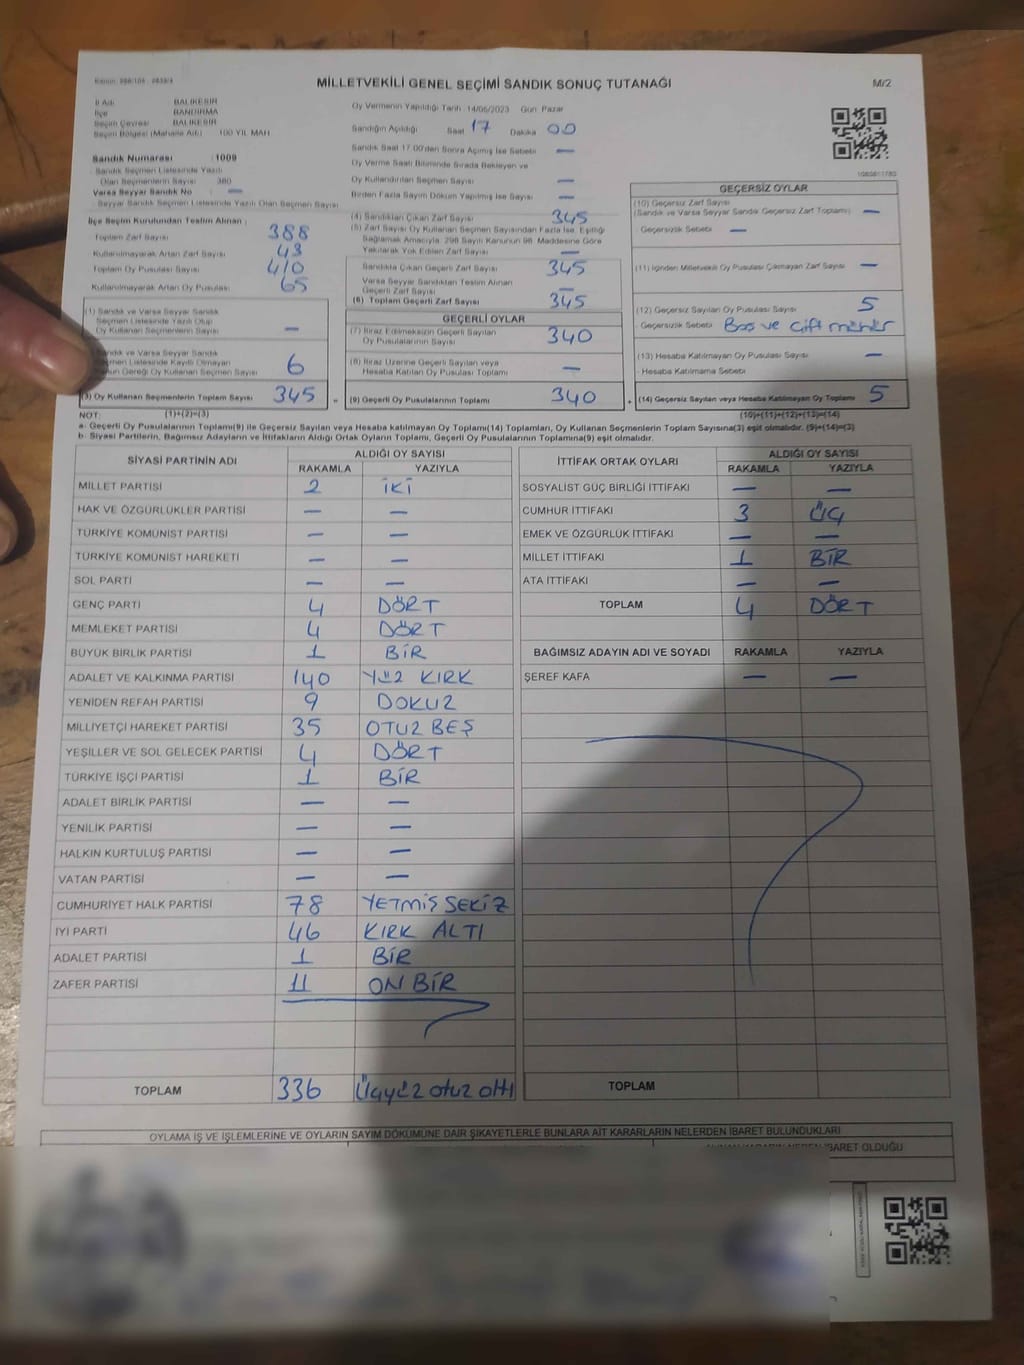 Kanun: 298/105 - 2839/4
MİLLETVEKİLİ GENEL SEÇİMİ SANDIK SONUÇ TUTANAĞI
M/2
İl Adı BALIKESİR
İlçe BANDIRMA
Seçim Çevresi BALIKESİR
Seçim Bölgesi (Mahalle Adı) 100 YIL MAH
Sandık Numarası : 1009
Sandık Seçmen Listesinde Yazılı
Olan Seçmenlerin Sayısı 380
Varsa Seyyar Sandık No —
Seyyar Sandık Seçmen Listesinde Yazılı Olan Seçmen Sayısı
Oy Vermenin Yapıldığı Tarih 14/05/2023 Gün Pazar
Sandığın Açıldığı Saat 17 Dakika 00
Sandık Saat 17.00'den Sonra Açılmış İse Sebebi —
Oy Verme Saati Bitiminde Sırada Bekleyen ve
Oy Kullandırılan Seçmen Sayısı —
Birden Fazla Sayım Döküm Yapılmış İse Sayısı —
İlçe Seçim Kurulundan Teslim Alınan :
Toplam Zarf Sayısı 388
Kullanılmayarak Artan Zarf Sayısı 43
Toplam Oy Pusulası Sayısı 410
Kullanılmayarak Artan Oy Pusulası 65
(1) Sandık ve Varsa Seyyar Sandık
Seçmen Listesinde Yazılı Olup
Oy Kullanan Seçmenlerin Sayısı —
Sandık ve Varsa Seyyar Sandık
Seçmen Listesinde Kayıtlı Olmayan
Kanun Gereği Oy Kullanan Seçmen Sayısı 6
(3) Oy Kullanan Seçmenlerin Toplam Sayısı 345 =
(4) Sandıktan Çıkan Zarf Sayısı 345
(5) Zarf Sayısı Oy Kullanan Seçmen Sayısından Fazla İse, Eşitliği
Sağlamak Amacıyla, 298 Sayılı Kanunun 98. Maddesine Göre
Yakılarak Yok Edilen Zarf Sayısı —
Sandıkta Çıkan Geçerli Zarf Sayısı 345
Varsa Seyyar Sandıktan Teslim Alınan
Geçerli Zarf Sayısı —
(6) Toplam Geçerli Zarf Sayısı 345
GEÇERLİ OYLAR
(7) İtiraz Edilmeksizin Geçerli Sayılan
Oy Pusulalarının Sayısı 340
(8) İtiraz Üzerine Geçerli Sayılan veya
Hesaba Katılan Oy Pusulası Toplamı —
(9) Geçerli Oy Pusulalarının Toplamı 340 +
GEÇERSİZ OYLAR
(10) Geçersiz Zarf Sayısı
(Sandık ve Varsa Seyyar Sandık Geçersiz Zarf Toplamı) —
Geçersizlik Sebebi —
(11) İçinden Milletvekili Oy Pusulası Çıkmayan Zarf Sayısı —
(12) Geçersiz Sayılan Oy Pusulası Sayısı 5
Geçersizlik Sebebi Boş ve Çift mühür
(13) Hesaba Katılmayan Oy Pusulası Sayısı —
Hesaba Katılmama Sebebi
(14) Geçersiz Sayılan veya Hesaba Katılmayan Oy Toplamı 5
NOT: (1)+(2)=(3) (10)+(11)+(12)+(13)=(14)
a- Geçerli Oy Pusulalarının Toplamı(9) ile Geçersiz Sayılan veya Hesaba katılmayan Oy Toplamı(14) Toplamları, Oy Kullanan Seçmenlerin Toplam Sayısına(3) eşit olmalıdır. (9)+(14)=(3)
b- Siyasi Partilerin, Bağımsız Adayların ve İttifakların Aldığı Ortak Oyların Toplamı, Geçerli Oy Pusulalarının Toplamına(9) eşit olmalıdır.
SİYASİ PARTİNİN ADI ALDIĞI OY SAYISI
RAKAMLA YAZIYLA
MİLLET PARTİSİ 2 İKİ
HAK VE ÖZGÜRLÜKLER PARTİSİ — —
TÜRKİYE KOMÜNİST PARTİSİ — —
TÜRKİYE KOMÜNİST HAREKETİ — —
SOL PARTİ — —
GENÇ PARTİ 4 DÖRT
MEMLEKET PARTİSİ 4 DÖRT
BÜYÜK BİRLİK PARTİSİ 1 BİR
ADALET VE KALKINMA PARTİSİ 140 YÜZ KIRK
YENİDEN REFAH PARTİSİ 9 DOKUZ
MİLLİYETÇİ HAREKET PARTİSİ 35 OTUZ BEŞ
YEŞİLLER VE SOL GELECEK PARTİSİ 4 DÖRT
TÜRKİYE İŞÇİ PARTİSİ 1 BİR
ADALET BİRLİK PARTİSİ — —
YENİLİK PARTİSİ — —
HALKIN KURTULUŞ PARTİSİ — —
VATAN PARTİSİ — —
CUMHURİYET HALK PARTİSİ 78 YETMİŞ SEKİZ
İYİ PARTİ 46 KIRK ALTI
ADALET PARTİSİ 1 BİR
ZAFER PARTİSİ 11 ON BİR
TOPLAM 336 Üçyüz otuz altı
İTTİFAK ORTAK OYLARI ALDIĞI OY SAYISI
RAKAMLA YAZIYLA
SOSYALİST GÜÇ BİRLİĞİ İTTİFAKI — —
CUMHUR İTTİFAKI 3 ÜÇ
EMEK VE ÖZGÜRLÜK İTTİFAKI — —
MİLLET İTTİFAKI 1 BİR
ATA İTTİFAKI — —
TOPLAM 4 DÖRT
BAĞIMSIZ ADAYIN ADI VE SOYADI RAKAMLA YAZIYLA
ŞEREF KAFA — —
TOPLAM
OYLAMA İŞ VE İŞLEMLERİNE VE OYLARIN SAYIM DÖKÜMÜNE DAİR ŞİKAYETLERLE BUNLARA AİT KARARLARIN NELERDEN İBARET BULUNDUKLARI
İBARET OLDUĞU